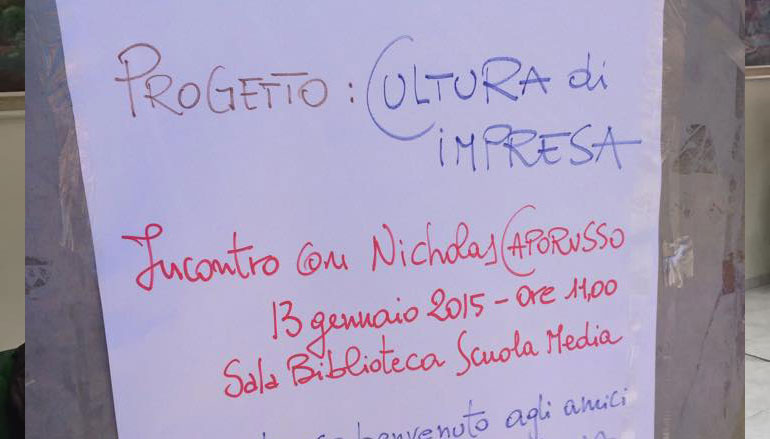 PROGETTO : CULTURA di
iMPRESA
Incontro con Nicholas CAPORUSSO
13 gennaio 2015 - ore 11,00
Sala Biblioteca Scuola Media
benvenuto agli amici